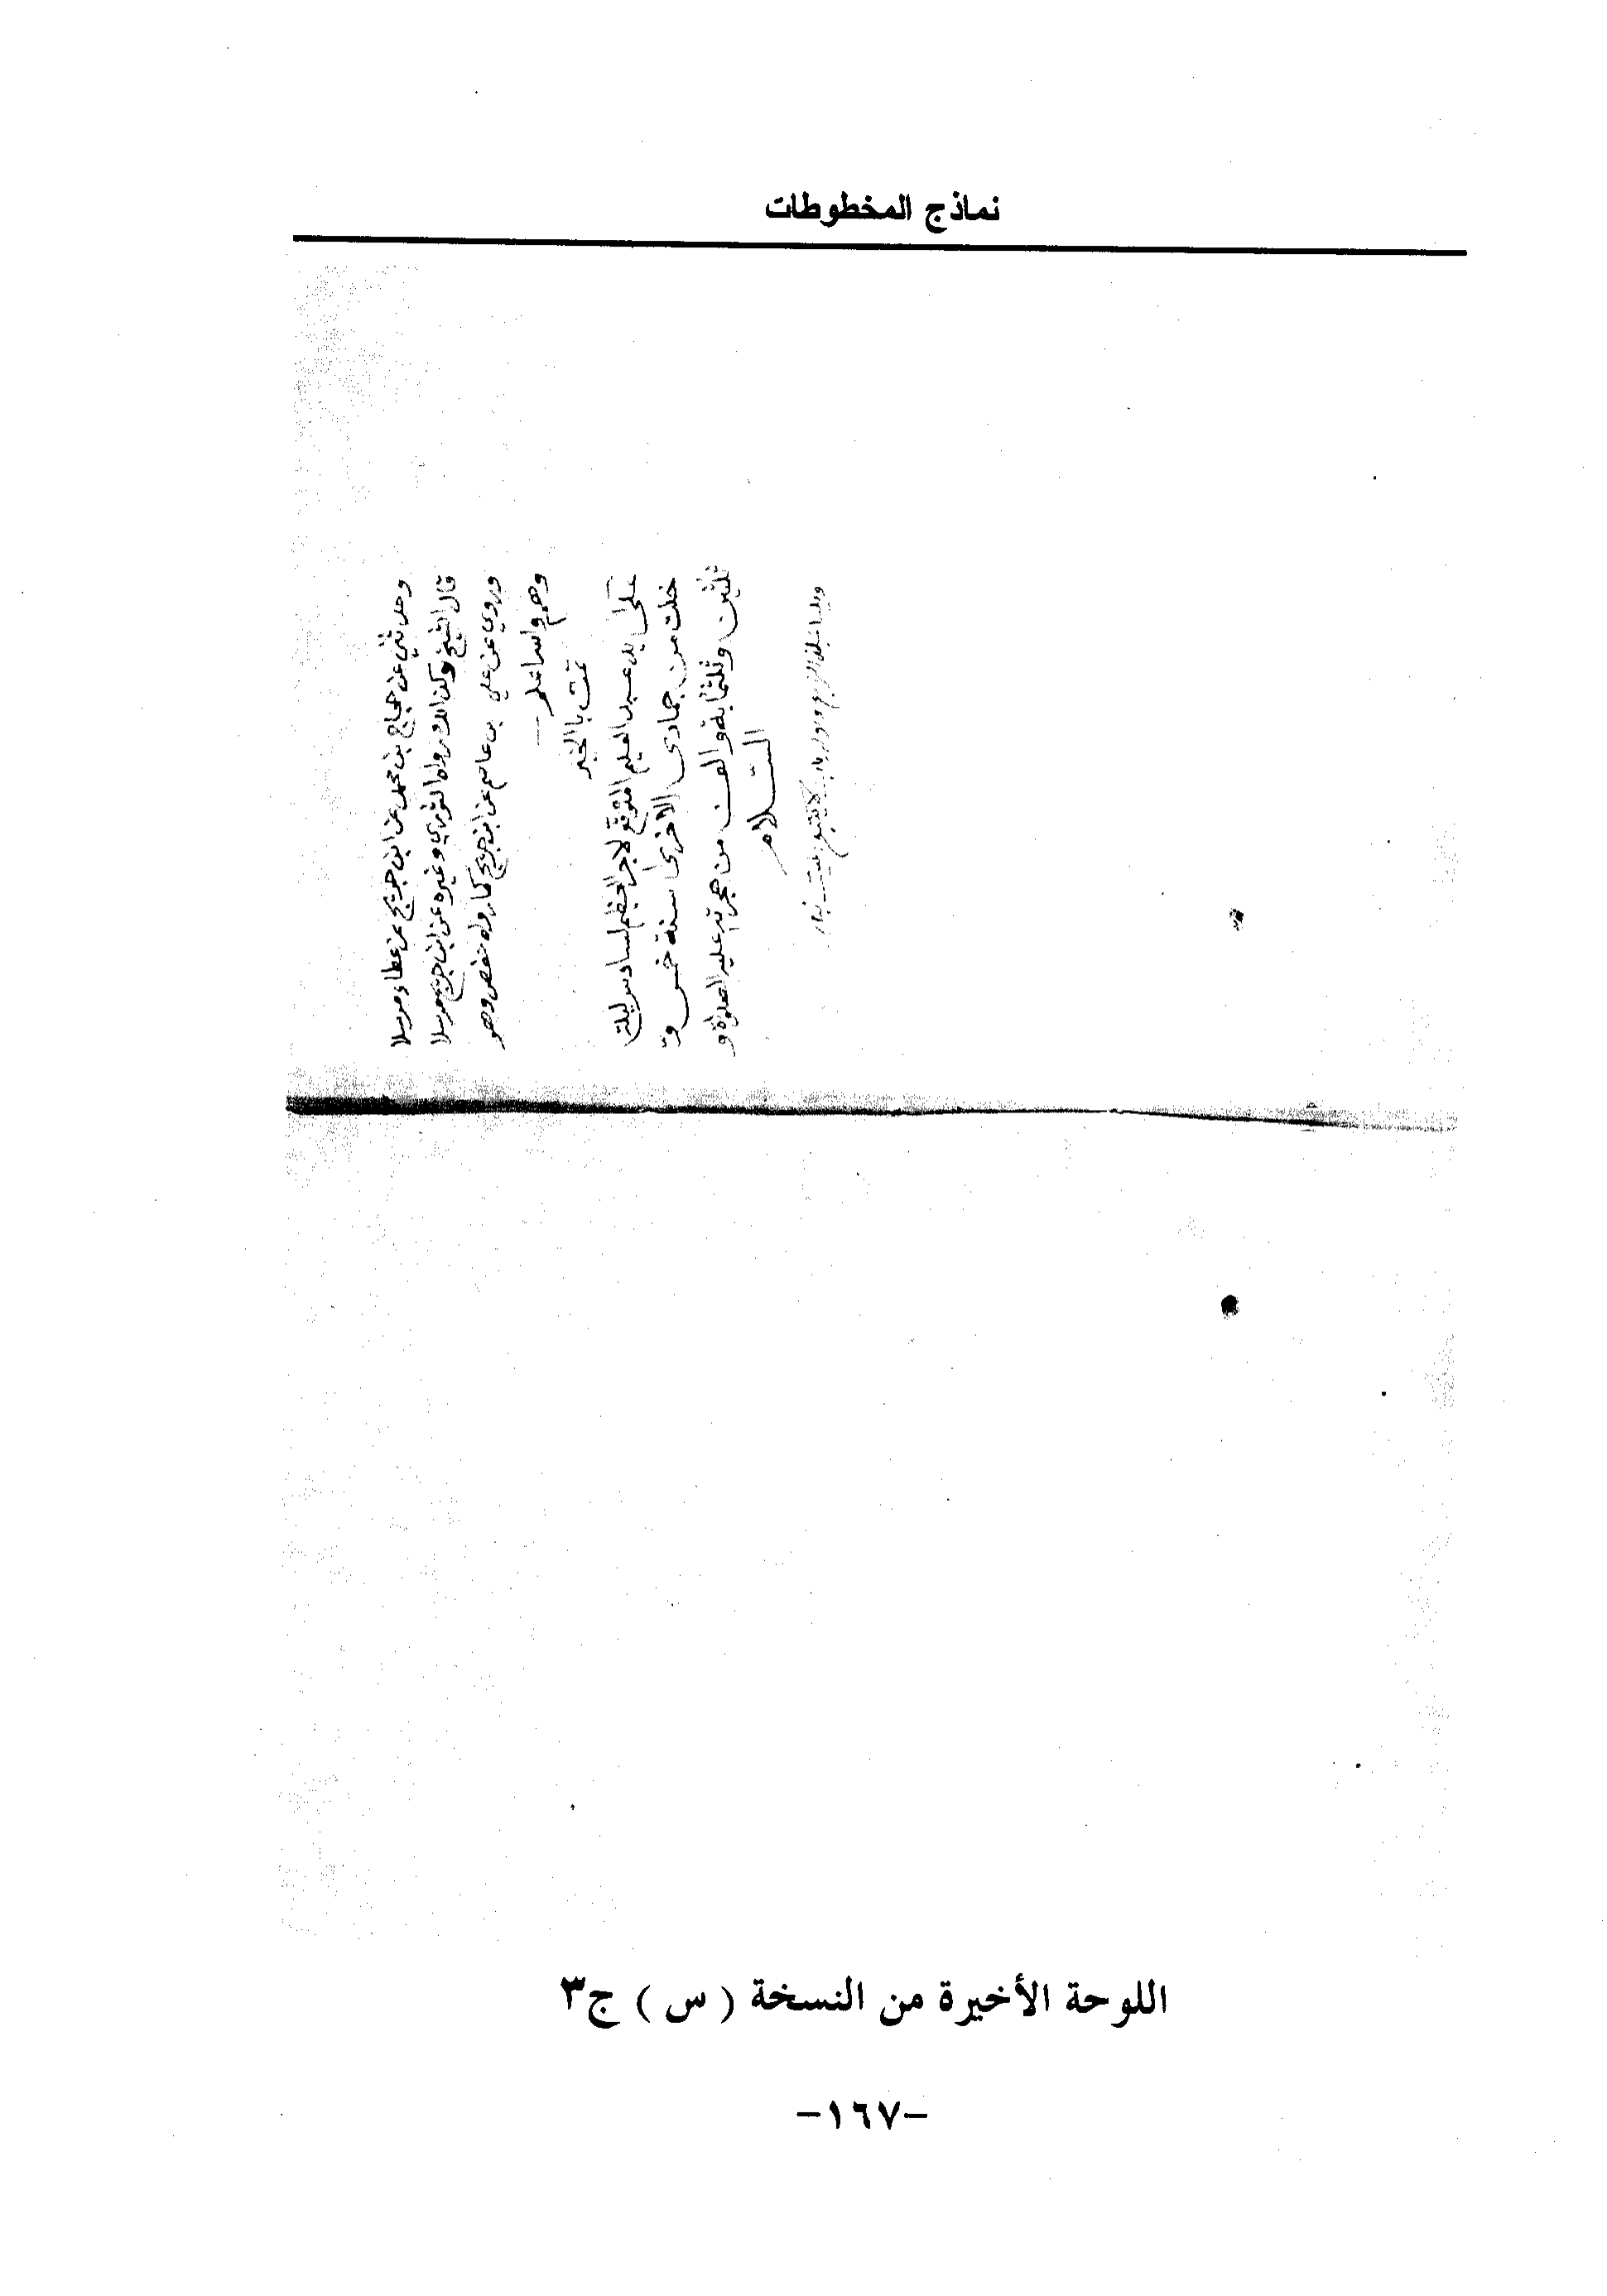 نماذج المخطوطات
وحدثني عن حجاج بن محمد عن ابن جريج عن عطاء مرسلا
قال الشيخ وكذلك رواه الثوري وغيره عن ابن جريج مرسلا
وروي عن علي بن عاصم عن ابن جريج كما رواه حفص وهو
وهم والله اعلم
تمت بالخير
على يد عبد العليم المتوقع لاجر العظيم لسادس ليلة
خلت من جمادى الاخرى سنة خمس و
ثلثين وثلثمائة والف من هجرته عليه الصلوة و
السلام
اللوحة الأخيرة من النسخة ( س ) ج٣
-١٦٧-